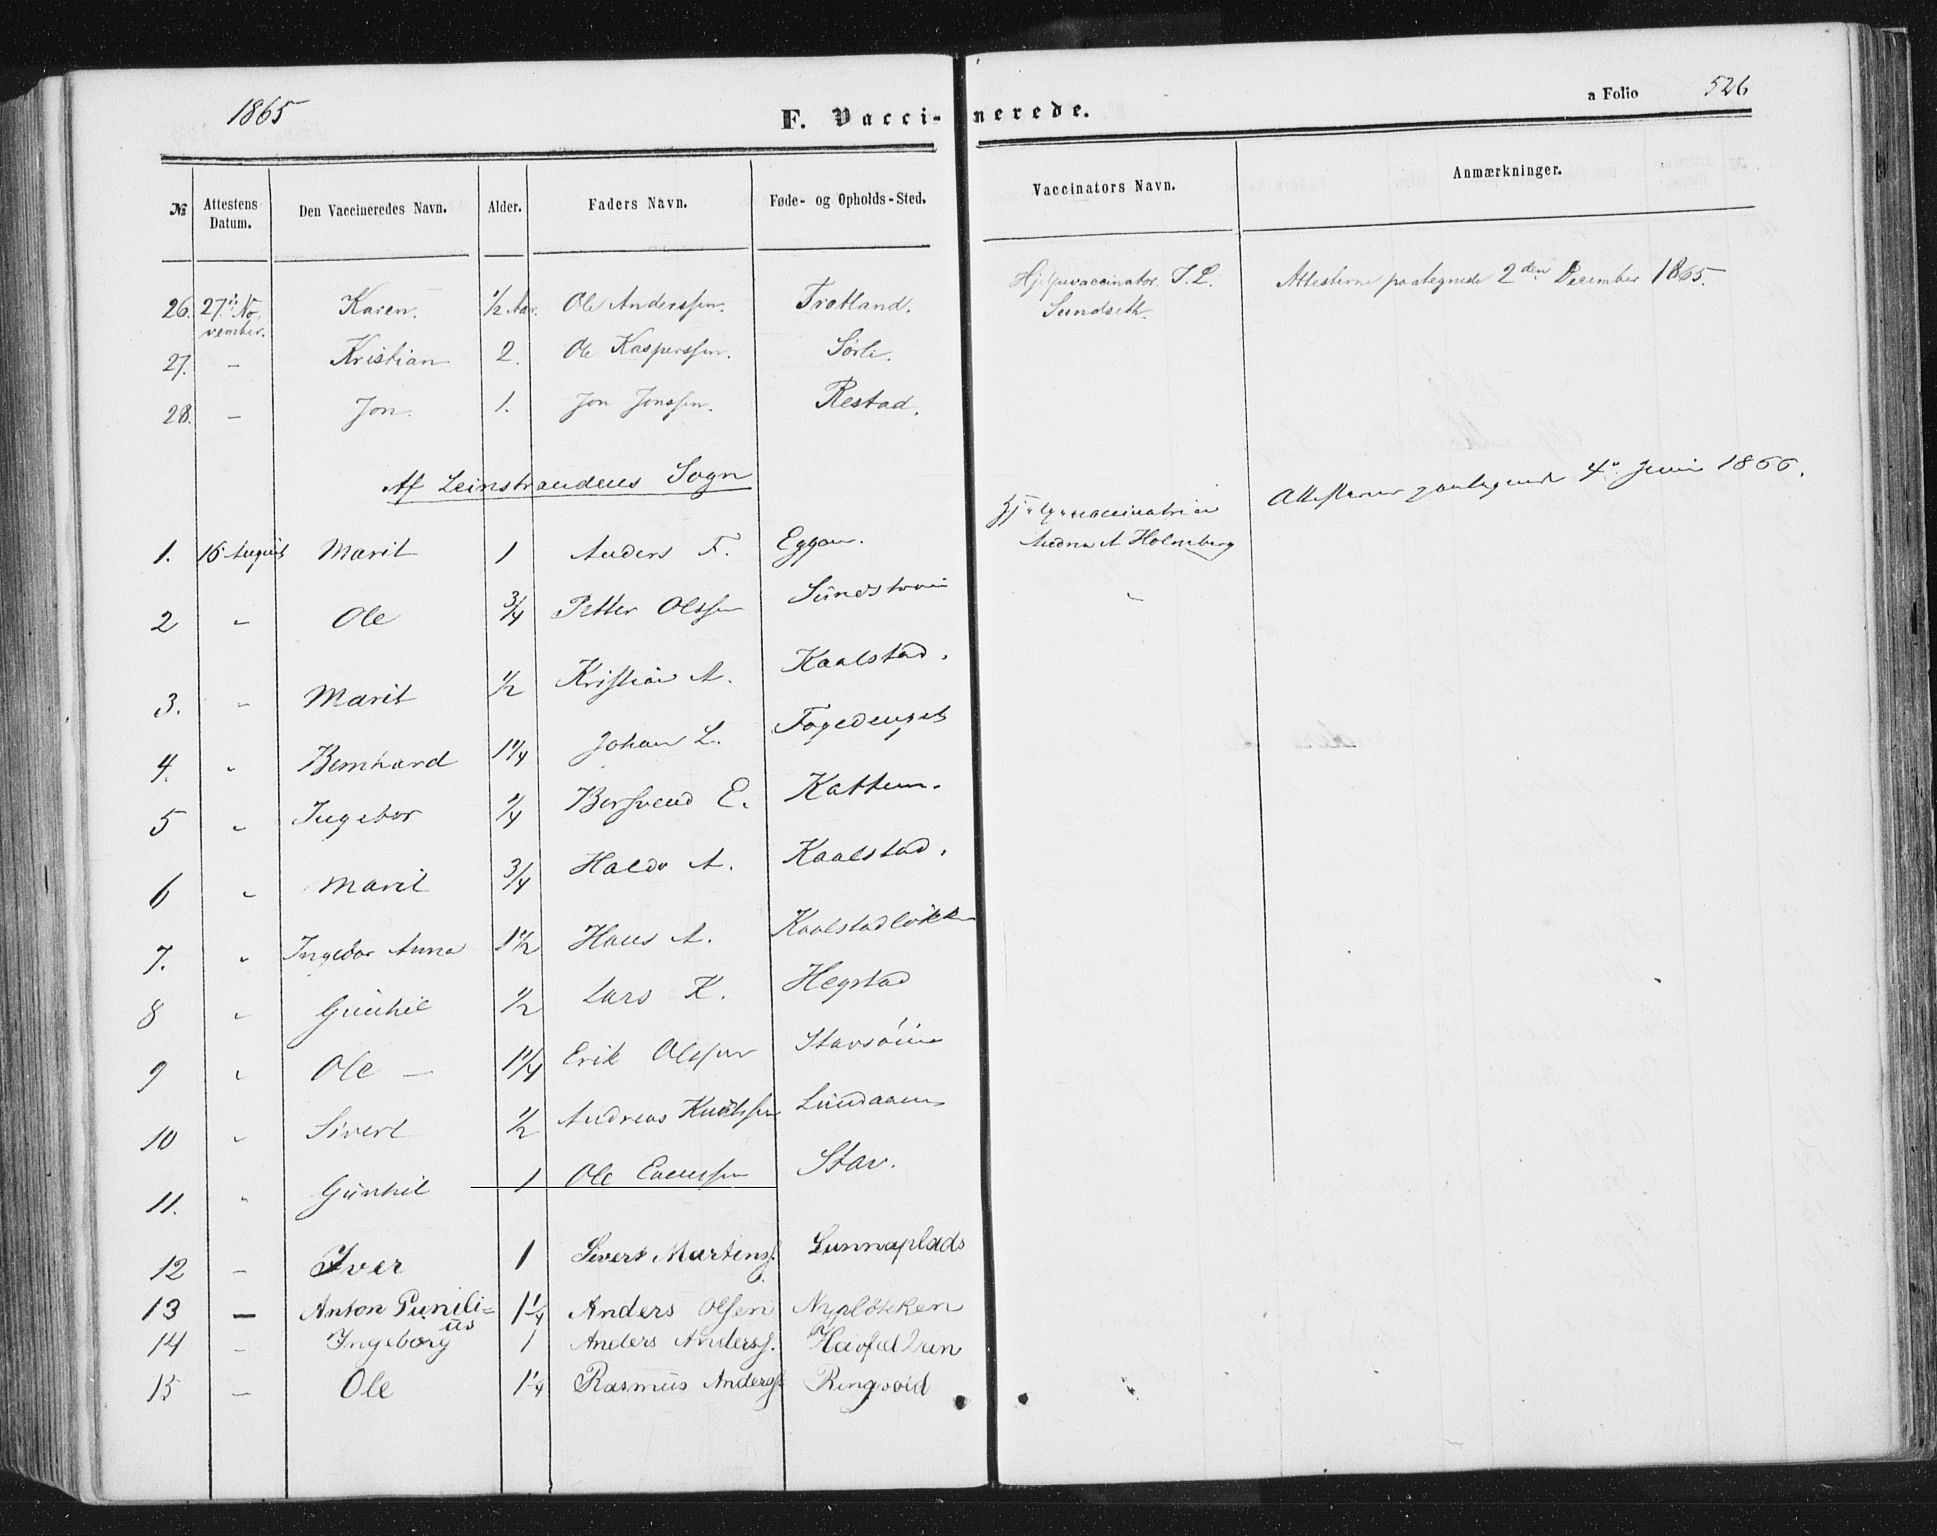 1865
F. Vaccinerede.
a Folio 526
№ Attestens Datum. Den Vaccineredes Navn. Alder. Faders Navn. Føde- og Opholds-Sted. Vaccinators Navn. Anmærkninger.
26. 27. No Karen. 1/2 Aar. Ole Anderssen. Trotland. Hjelpevaccinator J. L. Attesterne paategnede 2den December 1865.
vember. Sundseth.
27. – Kristian 2. Ole Kasperssen. Sørli.
28. – Jon. 1. Jon Jonssen. Restad.
Af Leinstrandens Sogn
Hjelpevaccinatrice Attesterne paategnede 4. Juni 1866.
1. 16 August Marit 1 Anders F. Eggan. A Holmberg
2 " Ole 3/4 Petter Olssen "
3. " Marit 1/2 Kristian A. Kaalstad.
4. " Bernhard 1 1/4 Johan L.
5 " Ingebor 1/4 Bersvend E. Kattem.
6 " Marit 3/4 Haldo A. Kaalstad.
7. " Ingebor Anna 1 1/2 Hans A. Kaalstadløkken
8 " Gunhil 1/2 Lars K. Hegstad
9 " Ole – 1 1/4 Erik Olssen
10 " Sivert 1/2 Andreas Knutssen
11. " Gunhil 1 Ole Stav.
12 – Iver 1 Sivert Martens.
13 – Anton 1 1/4 Anders Olsen
14 – Ingeborg 1 Anders Anders.
15 – Ole 1 1/4 Rasmus Anders. Ringsvid